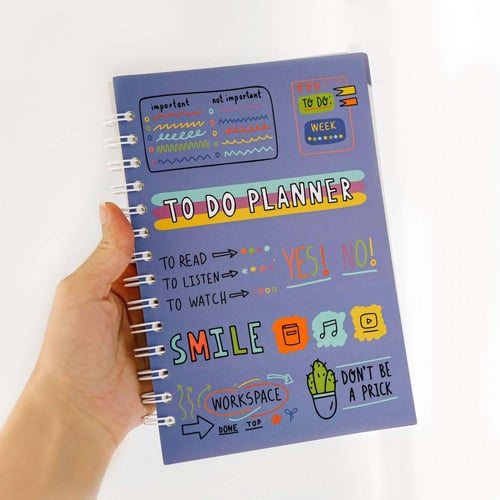 important not important
TO DO:
WEEK
TO DO PLANNER
TO READ
TO LISTEN
TO WATCH
YES! NO!
SMILE
WORKSPACE
DONE TOP
DON'T BE
A PRICK